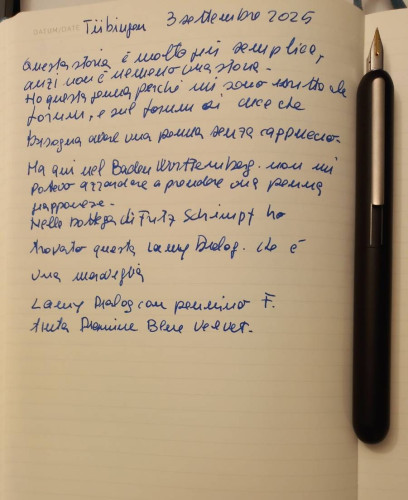 DATUM/DATE Tübingen 3 settembre 2025
Questa storia è molto più semplice,
anzi non è nemmeno una storia.
Ho questa penna perché mi sono iscritto al
forum, e sul forum si dice che
bisogna avere una penna senza cappuccio.
Ma qui nel Baden Württemberg non mi
potevo azzardare a prendere una penna
giapponese.
Nella bottega di Fritz Schimpf ho
trovato questa Lamy Dialog. che è
una meraviglia
Lamy Dialog con pennino F.
Diamine Blue Velvet.